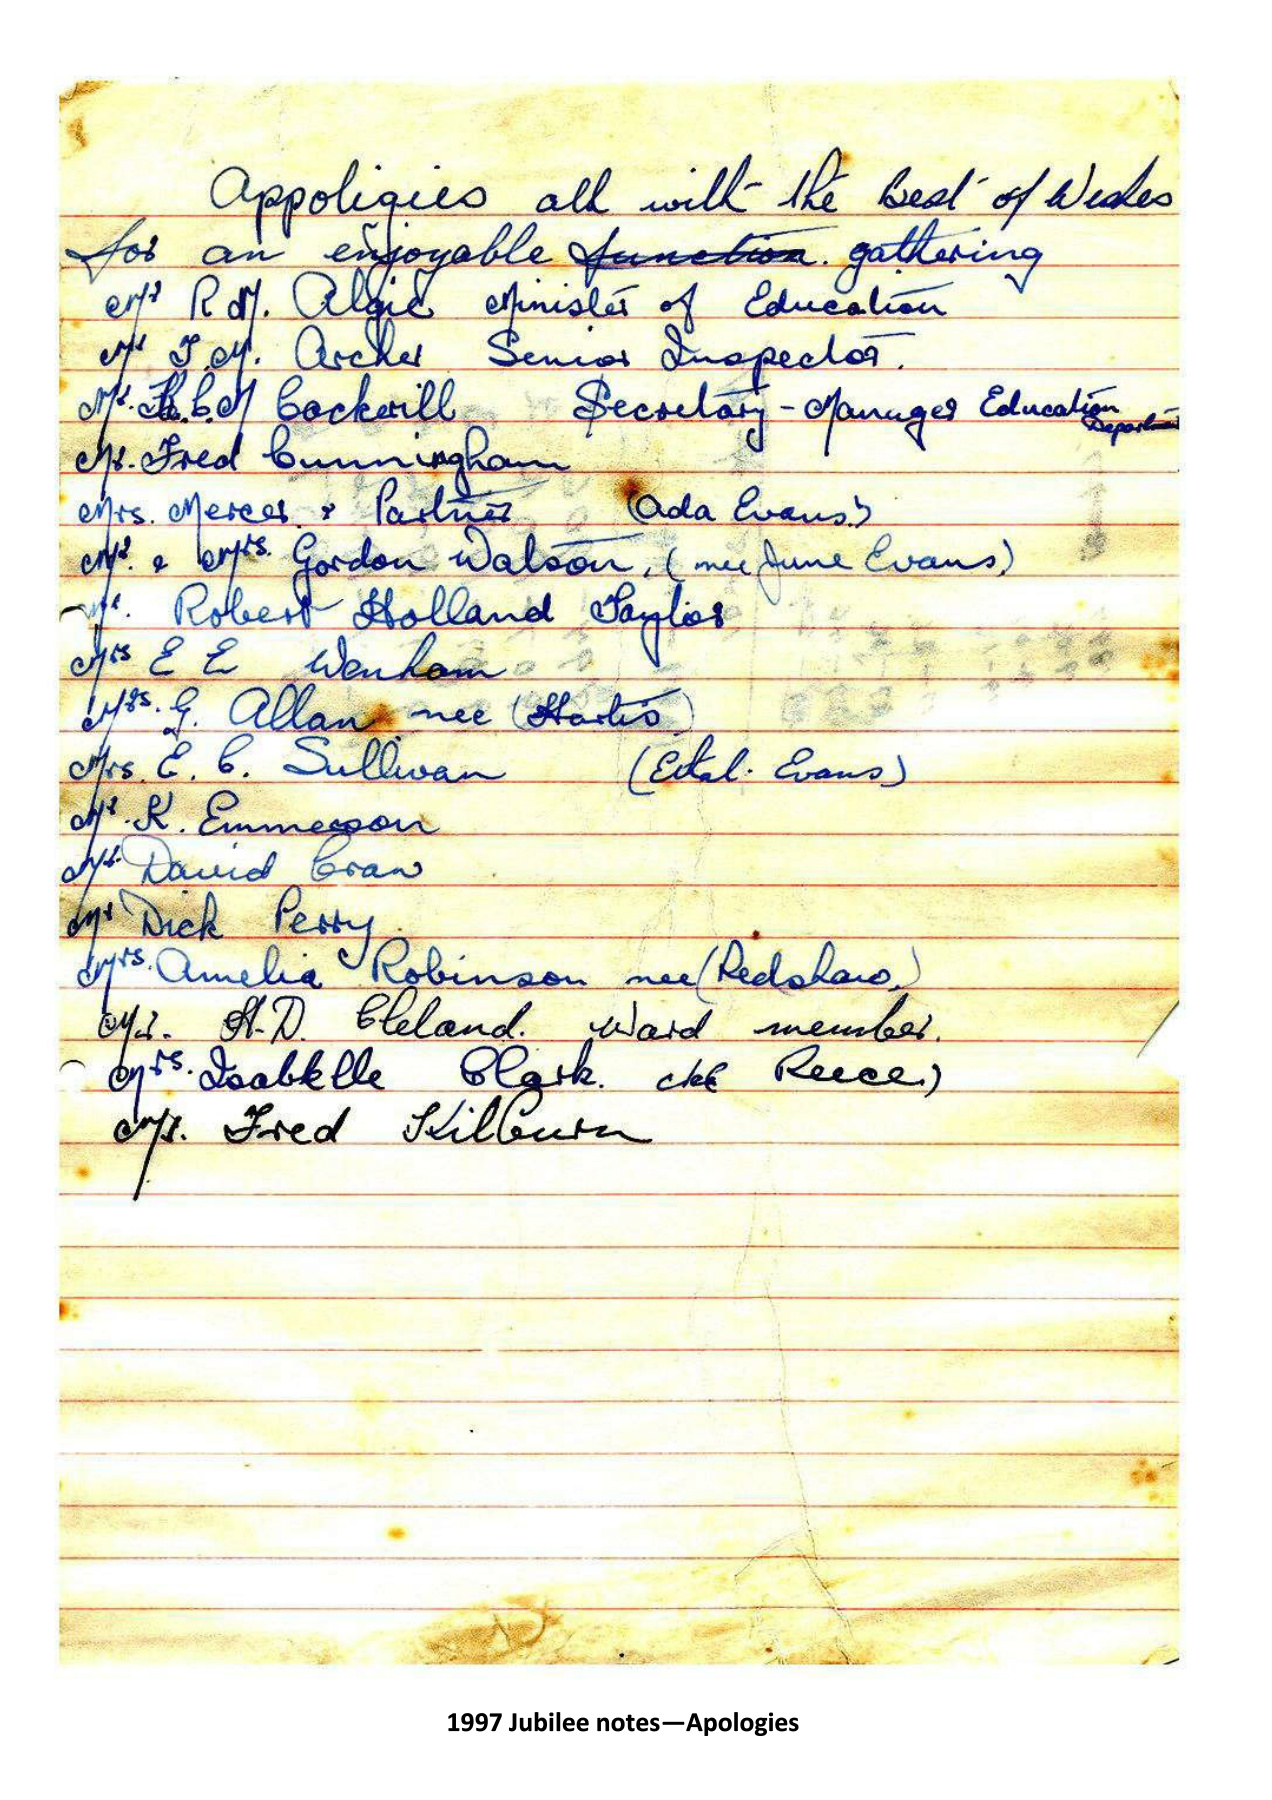 Appoligies all with the Best of Wishes
for an enjoyable function. gathering
Mr R M. Algie Minister of Education
Mr T. M. Archer Senior Inspector.
Mr. Cockerill Secretary - Manager Education
Department
Mr. Fred Cunningham
Mrs. Mercer & Partner (Ada Evans.)
Mr. & Mrs. Gordon Watson, (nee June Evans)
Mr. Robert Holland Taylor
Mrs E E Wenham
Mrs. G. Allan nee (Harris)
Mrs. E. C. Sullivan (Evans)
Mr. K. Emmerson
Mr. David Craw
Mr Dick Perry
Mrs. Amelia Robinson nee (Redshaw.)
Mr. H.D. Cleland. Ward member.
Mrs. Isabelle Clark. Reece.)
Mr. Fred Kilburn
1997 Jubilee notes—Apologies